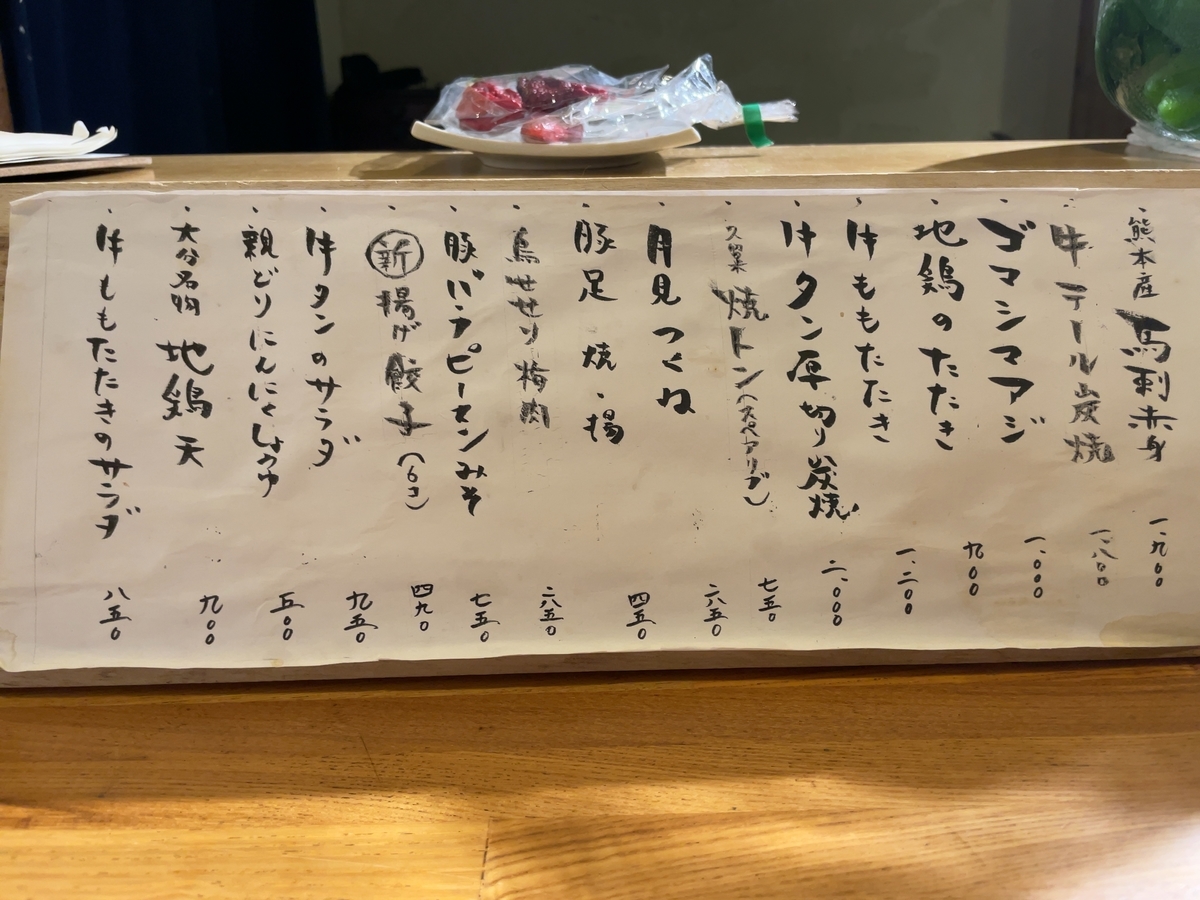 ・熊本産 馬刺赤身 一、九〇〇
・牛テール炭焼 一、八〇〇
・ゴマシマアジ 一、〇〇〇
・地鶏のたたき 九〇〇
・牛ももたたき 一、二〇〇
・牛タン厚切り炭焼 二、〇〇〇
・久留米 焼トン(スペアリブ) 七五〇
・月見つくね 二八五〇
・豚足 焼・揚 四五〇
・鳥せせり梅肉 二八五〇
・豚バラピーマンみそ 七五〇
・新 揚げ餃子(6コ) 四九〇
・牛タンのサラダ 九五〇
・親どりにんにくしょうゆ 五〇〇
・大分名物 地鶏天 九〇〇
・牛ももたたきのサラダ 八五〇